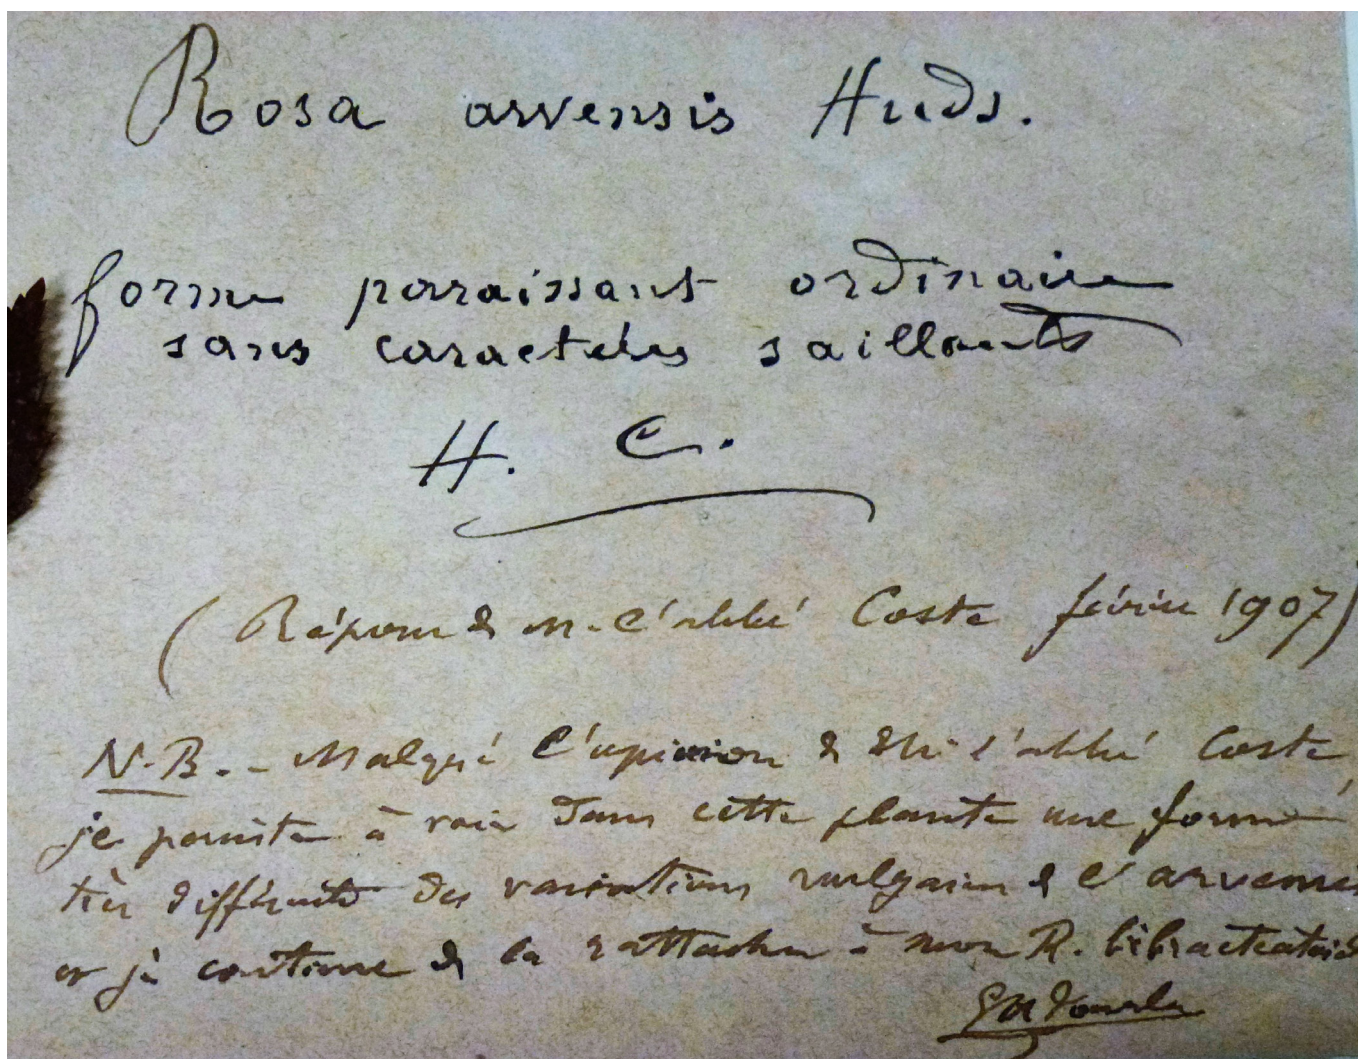 Rosa arvensis Huds.
forme paraissant ordinaire
sans caractères saillants
H. C.
(Réponse de M. l'abbé Coste février 1907)
N.B. - Malgré l'opinion de M. l'abbé Coste,
je persiste à voir dans cette plante une forme
très différente des variations vulgaires de l'arvensis
et je continue de la rattacher à mon R. bibracteatoides